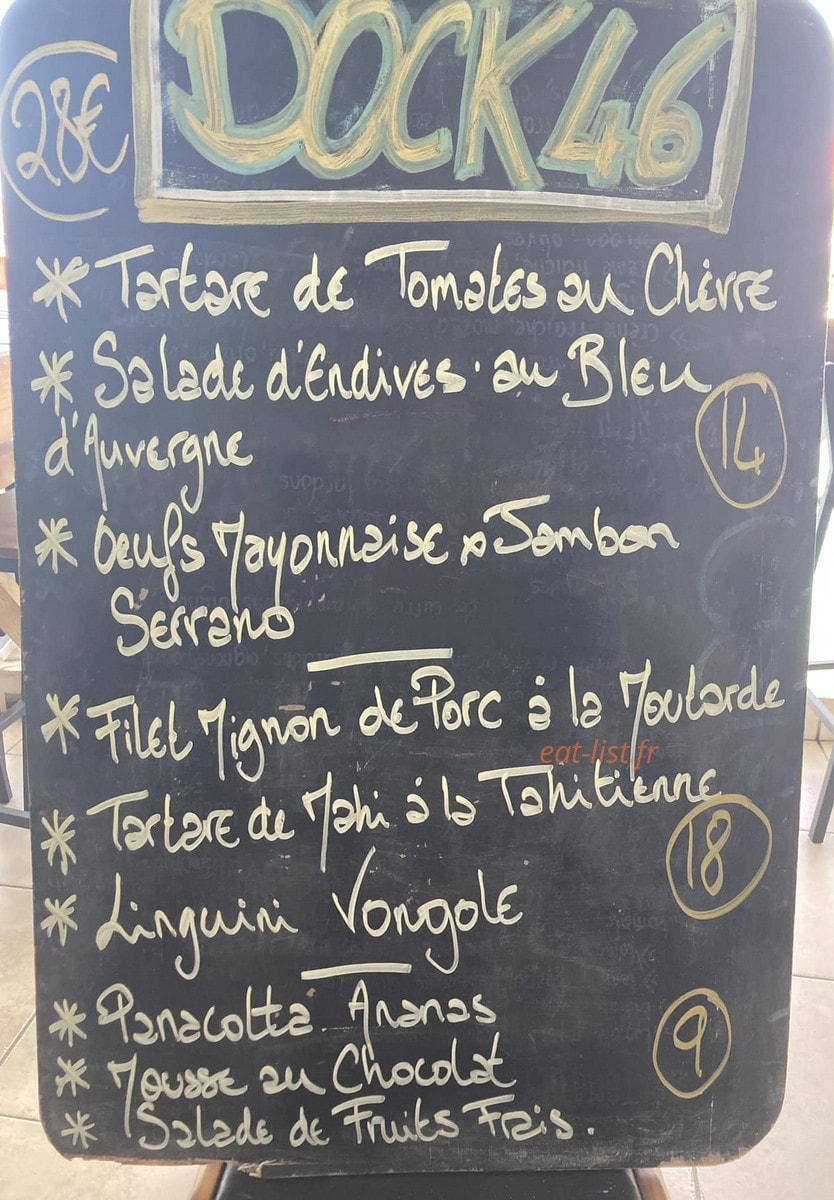 28€
DOCK 46
* Tartare de Tomates au Chèvre
* Salade d'Endives au Bleu
d'Auvergne
14
* Oeufs Mayonnaise x Jambon
Serrano
* Filet Mignon de Porc à la Moutarde
eat-list.fr
* Tartare de Mahi à la Tahitienne
18
* Linguini Vongole
* Panacotta Ananas
9
* Mousse au Chocolat
* Salade de Fruits Frais.